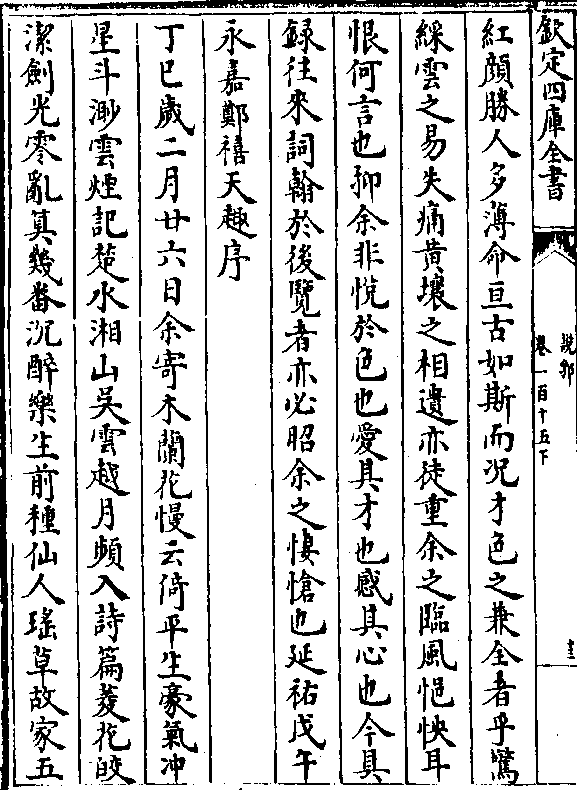 欽定四庫全書
說郛
卷一百十五下
紅顔勝人多薄命亘古如斯而况才色之兼全者乎驚
綵雲之易失痛黄壤之相遺亦徒重余之臨風悒怏耳
恨何言也抑余非悅於色也愛其才也感其心也今具
録往來詞翰於後覽者亦必昭余之悽愴也延祐戊午
永嘉鄭禧天趣序
丁巳歲二月廿六日余寄木蘭花慢云倚平生豪氣冲
星斗渺雲煙記楚水湘山吳雲越月頻入詩篇菱花皎
潔劍光零亂筭幾番沉醉樂生前種仙人瑤草故家五